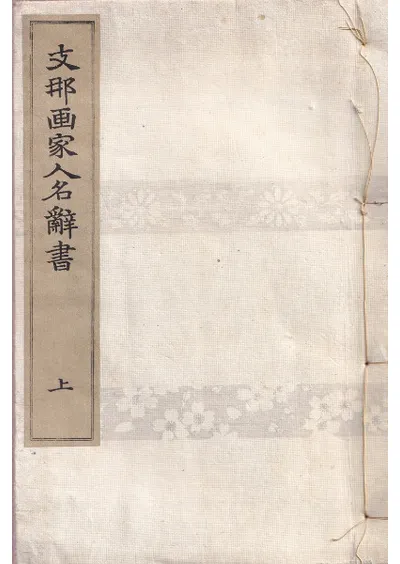 支那画家人名辭書
上